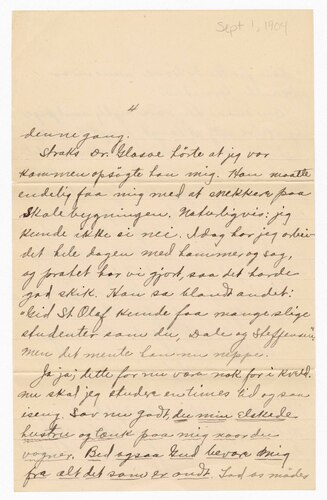 Sept 1, 1904
4
denne gang.
Straks Dr. Glasoe hörte at jeg var
kommen opsögte han mig. Han maatte
endelig faa mig med at snekkere paa
Skolebygningen. Naturligvis; jeg
kunde ikke si nei. Idag har jeg arbeidet
det hele dagen med hammer og sag,
og pradet har vi gjort, saa det havde
god skik. Han sa blandt andet:
"Gid St Olaf kunde faa mange slige
studenter som du, Dale og Steffensen",
men det mente han nu neppe.
Ja ja, dette for nu være nok for i kveld.
nu skal jeg studere en times tid og saa
iseng. Sov nu godt, du min elskede
hustru og tænk paa mig naar du
vaagner. Bed ogsaa Gud bevare mig
fra alt det som er ondt. Lad os mödes